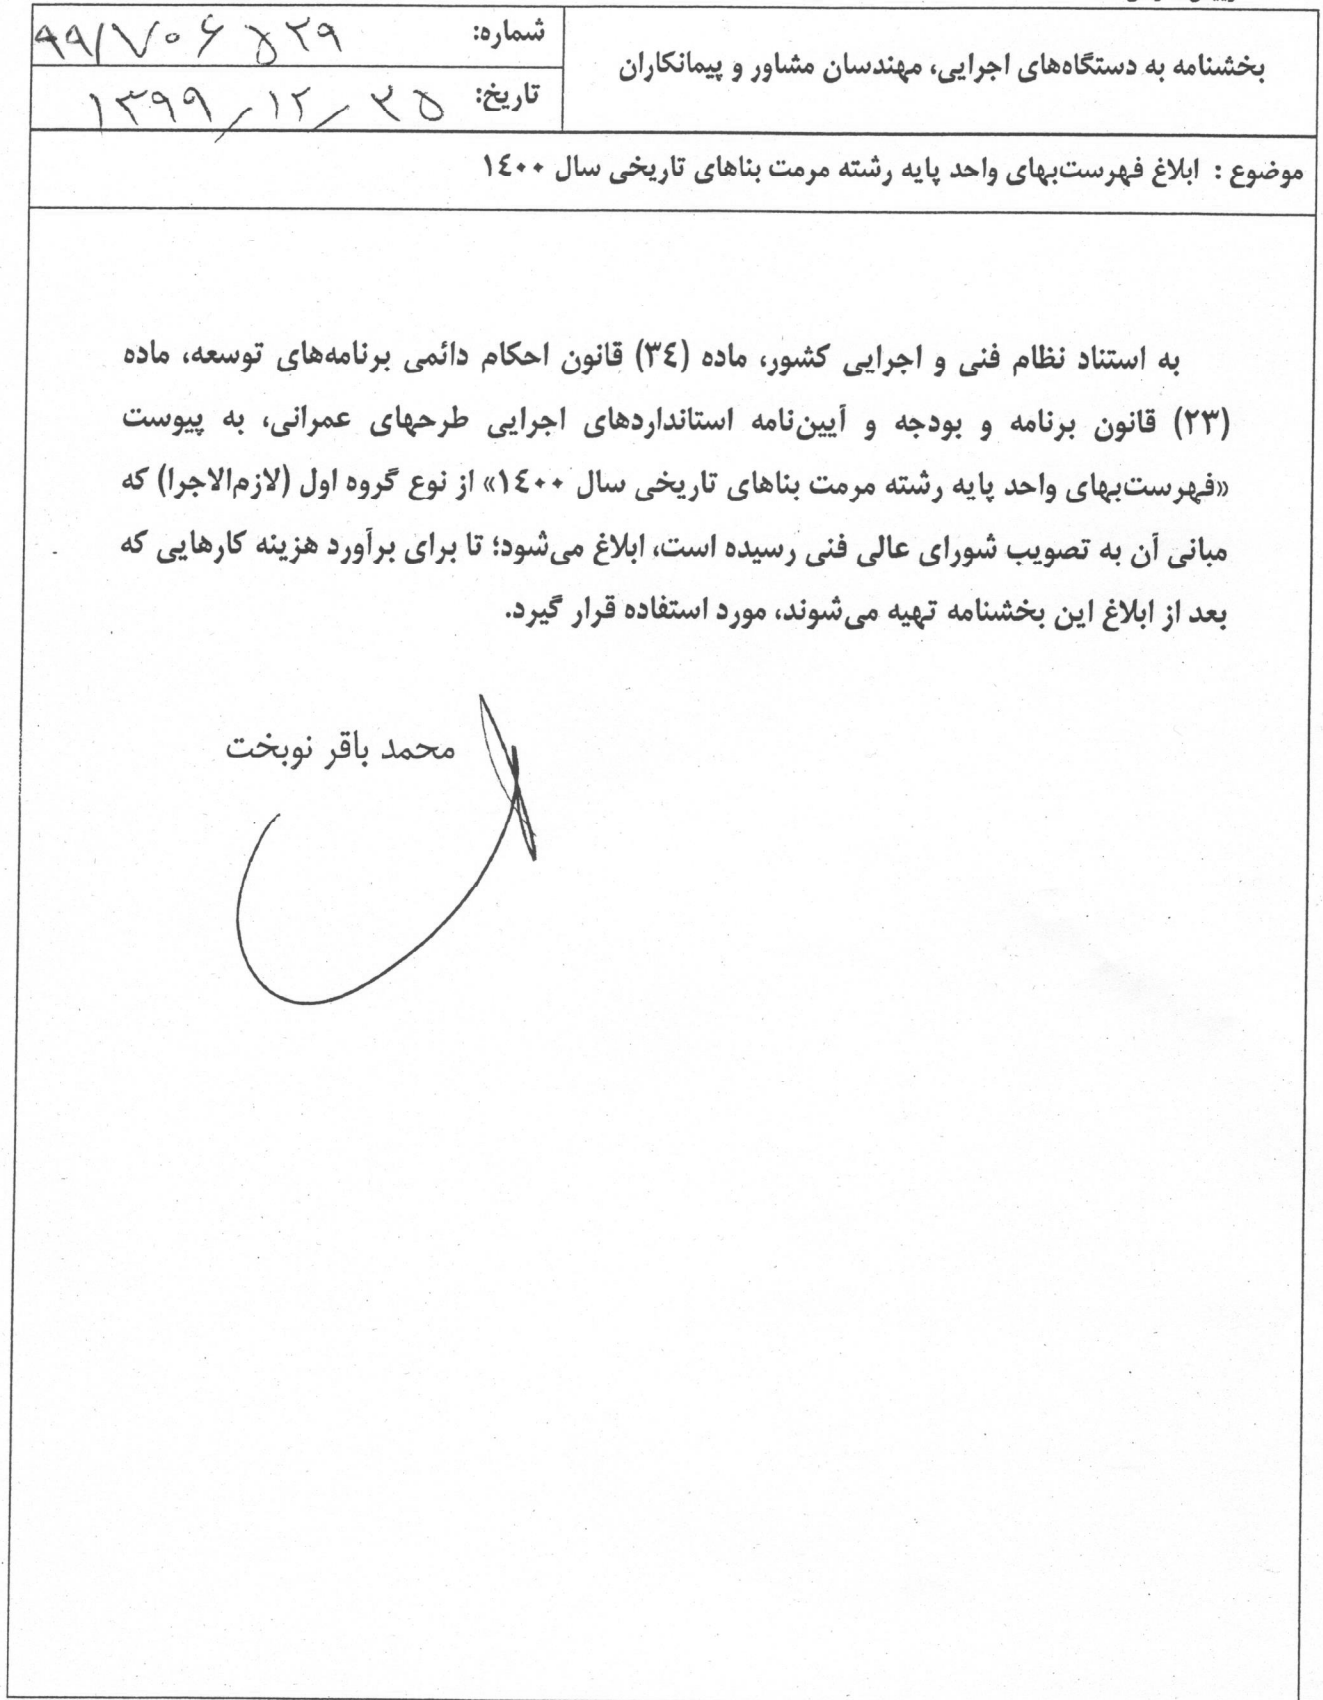 بخشنامه به دستگاه‌های اجرایی، مهندسان مشاور و پیمانکاران
شماره: ۹۹/۷۰۶۵۲۹
تاریخ: ۱۳۹۹/۱۲/۲۵
موضوع : ابلاغ فهرست‌بهای واحد پایه رشته مرمت بناهای تاریخی سال ۱٤۰۰
به استناد نظام فنی و اجرایی کشور، ماده (۳٤) قانون احکام دائمی برنامه‌های توسعه، ماده
(۲۳) قانون برنامه و بودجه و آیین‌نامه استانداردهای اجرایی طرحهای عمرانی، به پیوست
«فهرست‌بهای واحد پایه رشته مرمت بناهای تاریخی سال ۱٤۰۰» از نوع گروه اول (لازم‌الاجرا) که
مبانی آن به تصویب شورای عالی فنی رسیده است، ابلاغ می‌شود؛ تا برای برآورد هزینه کارهایی که
بعد از ابلاغ این بخشنامه تهیه می‌شوند، مورد استفاده قرار گیرد.
محمد باقر نوبخت